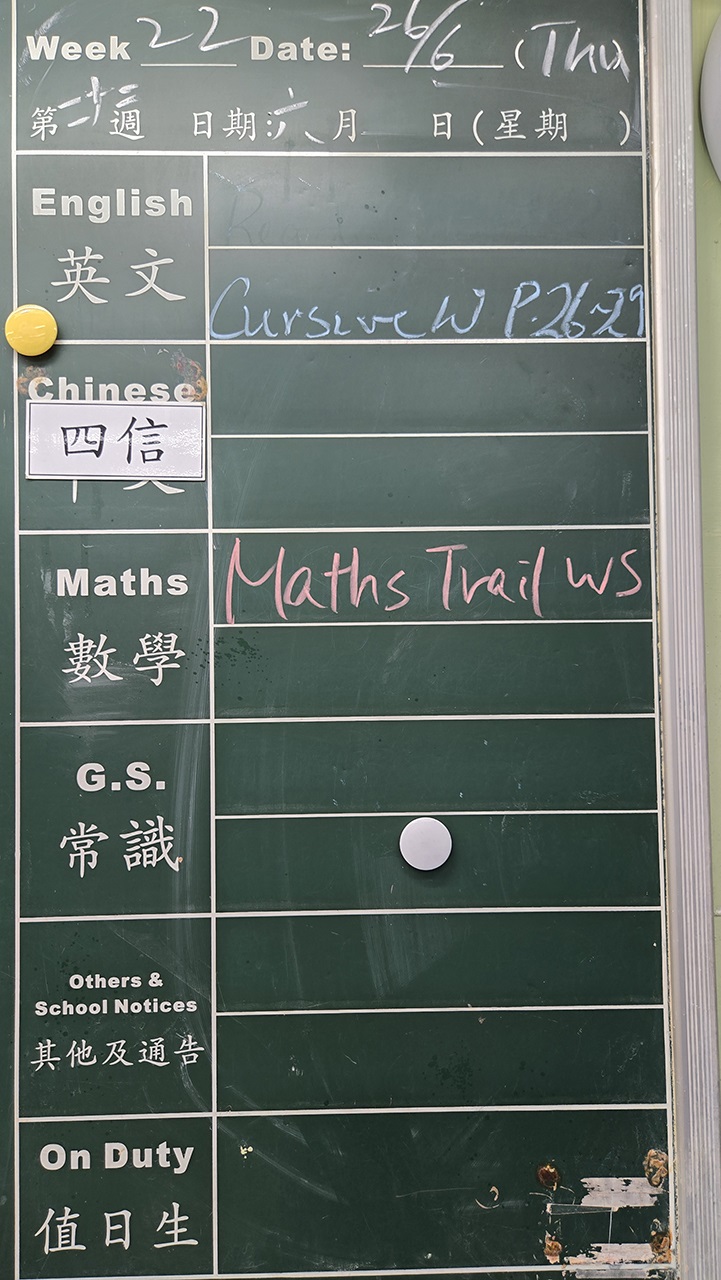 Week 22 Date: 26/6 (Thu)
第二十三週 日期:六月 日(星期 )
English
英文
Cursive W P.26~29
Chinese
四信
Maths
Maths Trail WS
數學
G.S.
常識
Others &
School Notices
其他及通告
On Duty
值日生